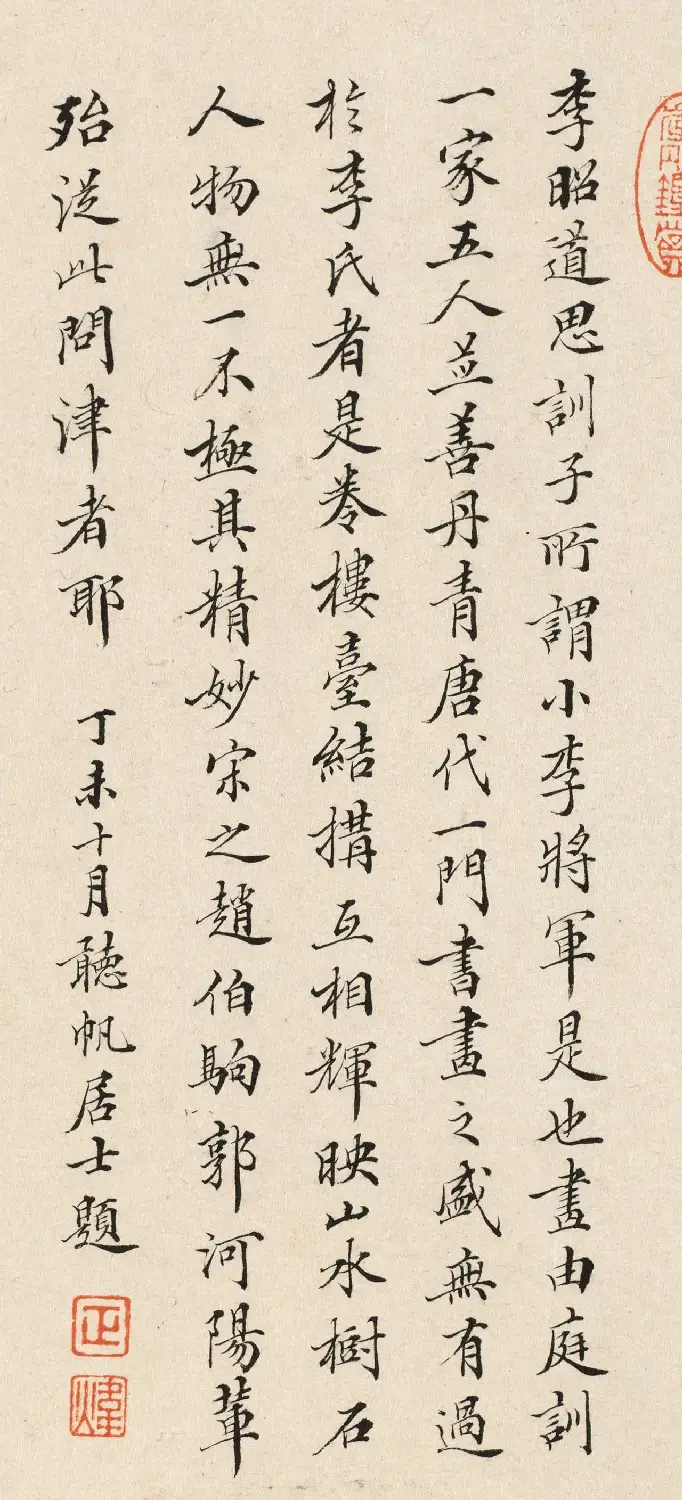 李昭道思訓子所謂小李將軍是也畫由庭訓
一家五人並善丹青唐代一門書畫之盛無有過
於李氏者是卷樓臺結搆互相輝映山水樹石
人物無一不極其精妙宋之趙伯駒郭河陽輩
殆從此問津者耶 丁未十月聽帆居士題
正
煒